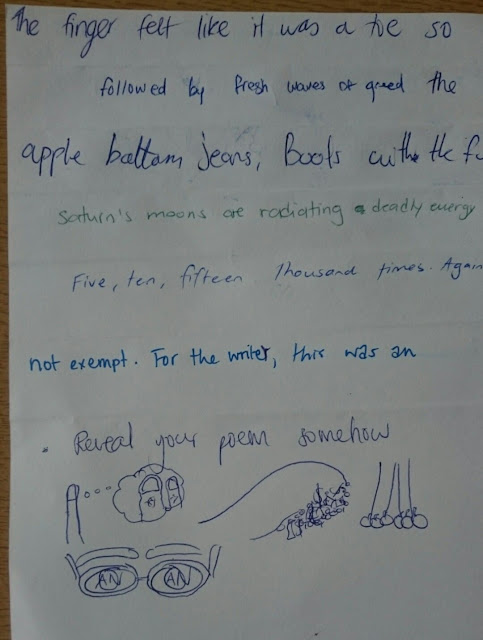 The finger felt like it was a toe so
followed by fresh waves of greed the
apple bottom jeans, Boots with the fu
Saturn's moons are radiating a deadly energy
Five, ten, fifteen thousand times. Again
not exempt. For the writer, this was an
* Reveal your poem somehow
AN AN